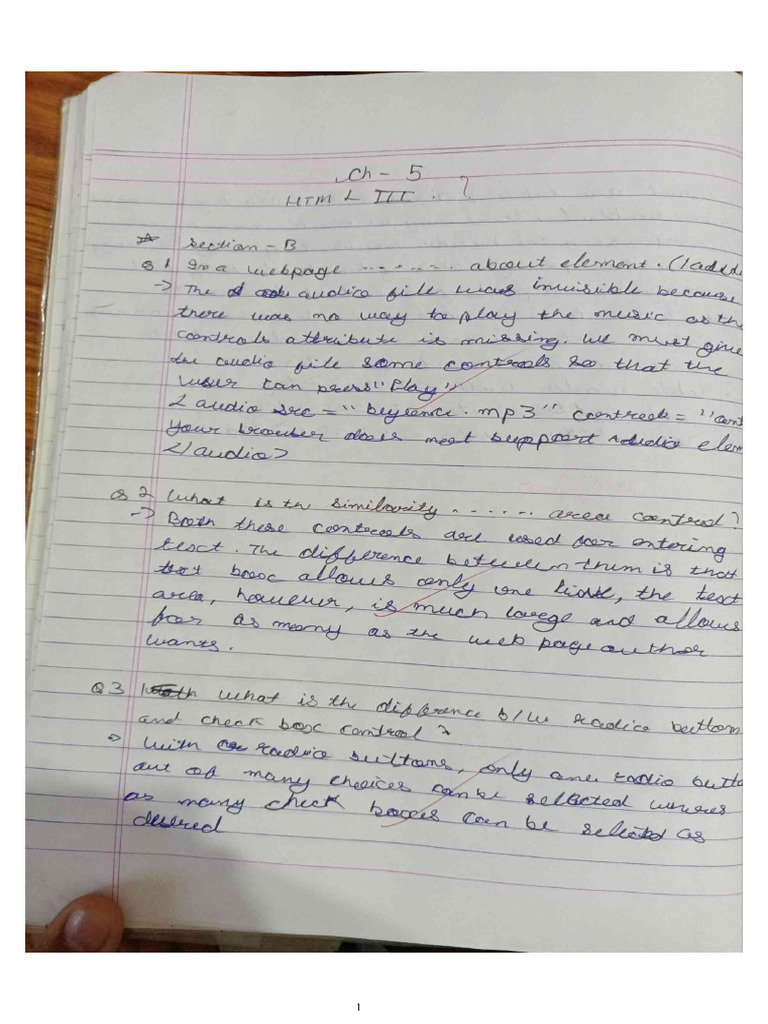 Ch - 5
HTML III . ?
Section - B
Q 1 In a webpage ....... about element. (/audio
→ The audio file was invisible because
there was no way to play the music as the
controls attribute is missing. We must give
the audio file some controls so that the
user can press "Play"
< audio src = "beyence. mp3" controls = "cont
your browser does not support audio elem
</audio>
Q 2 What is th similarity ...... area control?
→ Both these controls are used for entering
text. The difference between them is that
text box allows only one line, the text
area, however, is much large and allows
for as many as the web page author
wants.
Q 3 What is the difference b/w radio button
and check box control ?
→ With radio buttons, only one radio butto
out of many choices can be selected wheres
as many check boxes can be selected as
desired
1